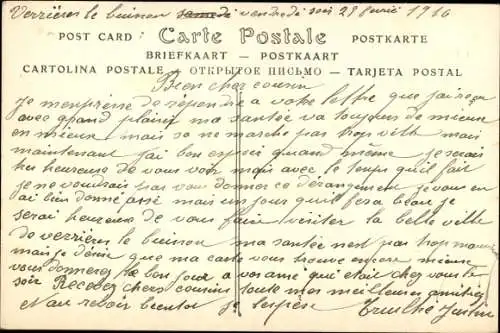 Verrières le buisson samedi vendredi soir 28 1916
POST CARD : Carte Postale : POSTKARTE
BRIEFKAART — POSTKAART
CARTOLINA POSTALE — ОТКРЫТОЕ ПИСЬМО — TARJETA POSTAL
Bien cher cousin
Je m'enpresse de répendre a votre lettre que j'ai reçu
avec grand plaisir ma santée va toujours de mieux
en mieux mais sa ne marche pas trop vitte mais
maintenant j'ai bon espoir quand même je serais
très heureuse de vous voir mais avec le temps qu'il fait
je ne voudrais pas vous donner ce dérangement je vous en
ai bien donné assé mais un jour qu'il fera beau je
serai heureuse de vous faire visiter la belle ville
de verrières le buisson ma santée n'est pas trop mauv
mais je désire que ma carte vous trouve encore mieux
vous donnerez le bonjour a vos amé qui était chez vous le
soir Recevez chers cousins toute mes meilleures amitiés
et au revoir bientot je l'espère Justin